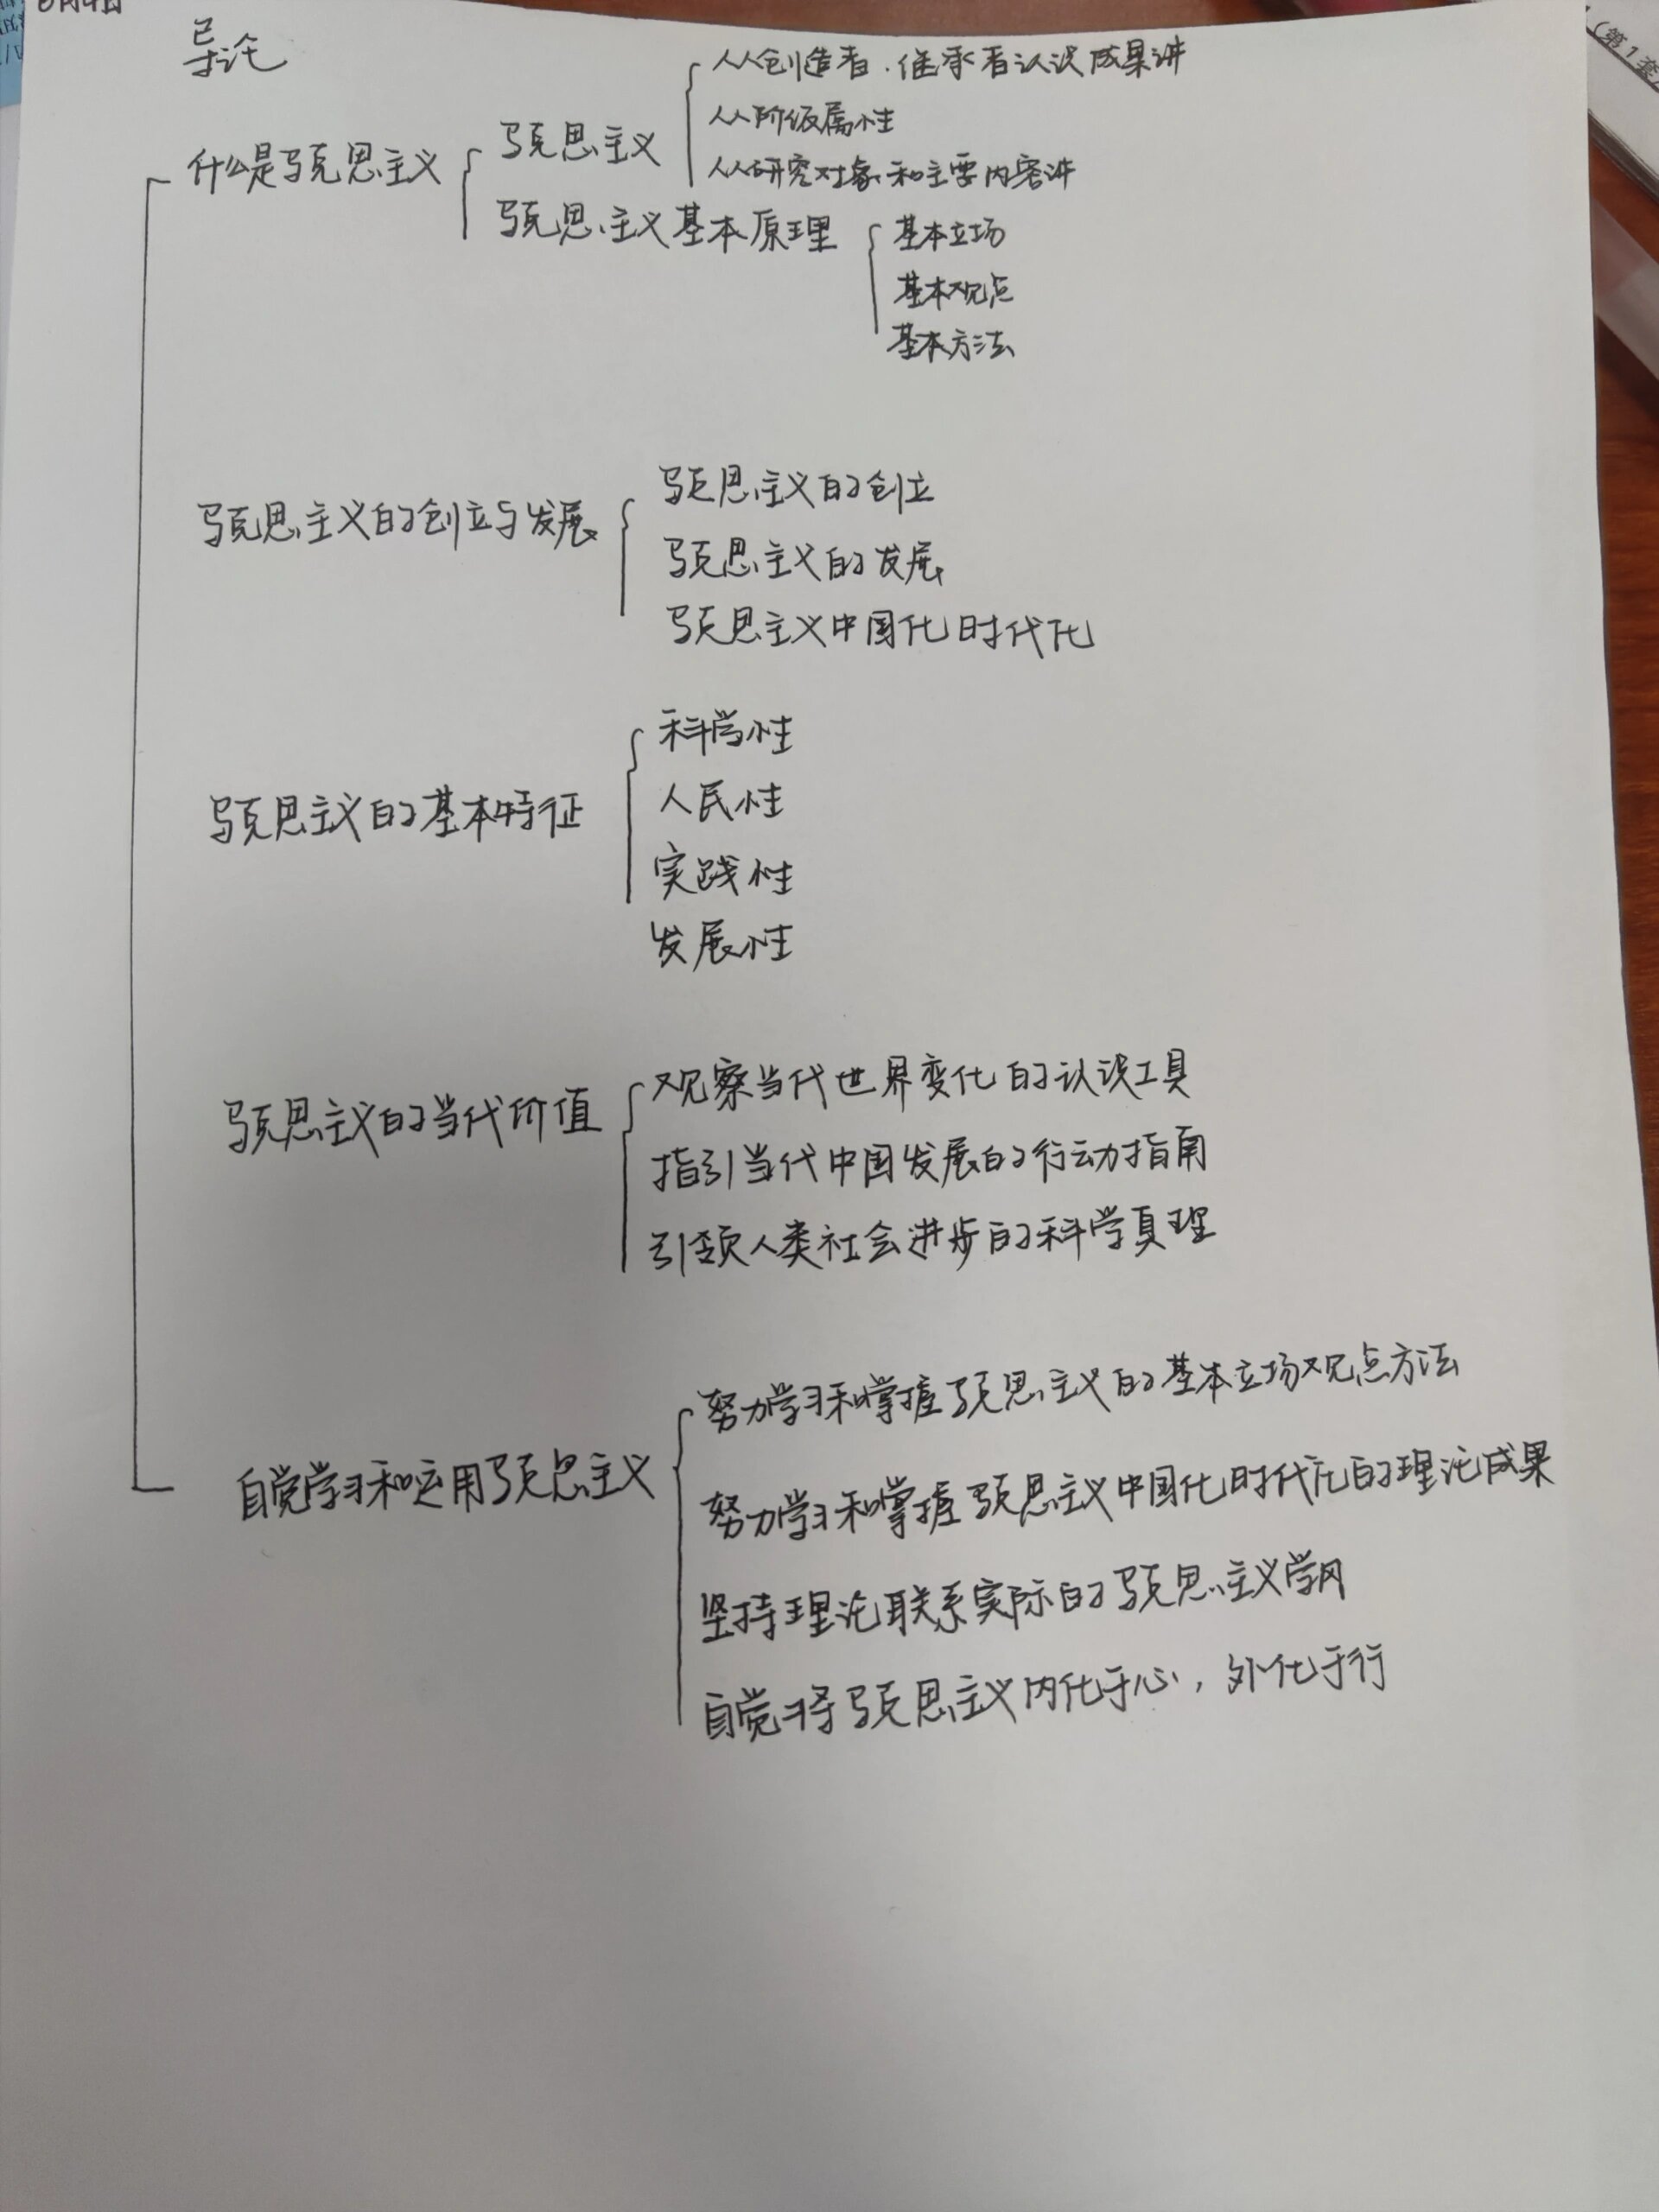 导论
从创造者.继承者认识成果讲
从阶级属性
从研究对象和主要内容讲
什么是马克思主义
马克思主义
马克思主义基本原理
基本立场
基本观点
基本方法
马克思主义的创立与发展
马克思主义的创立
马克思主义的发展
马克思主义中国化时代化
马克思主义的基本特征
科学性
人民性
实践性
发展性
马克思主义的当代价值
观察当代世界变化的认识工具
指引当代中国发展的行动指南
引领人类社会进步的科学真理
自觉学习和运用马克思主义
努力学习和掌握马克思主义的基本立场观点方法
努力学习和掌握马克思主义中国化时代化的理论成果
坚持理论联系实际的马克思主义学风
自觉将马克思主义内化于心，外化于行
(第1套